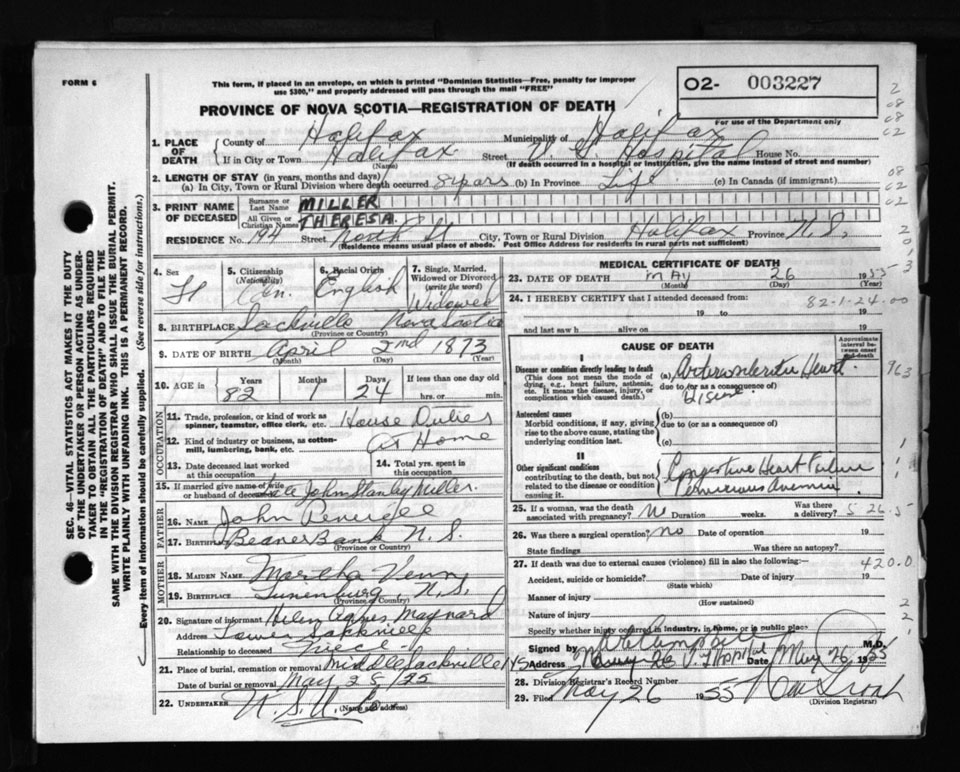 FORM 6
This form, if placed in an envelope, on which is printed "Dominion Statistics—Free, penalty for improper
use $300," and properly addressed will pass through the mail "FREE"
PROVINCE OF NOVA SCOTIA—REGISTRATION OF DEATH
O2- 003227
For use of the Department only
2
08
08
02
SEC. 46—VITAL STATISTICS ACT MAKES IT THE DUTY
OF THE UNDERTAKER OR PERSON ACTING AS UNDER-
TAKER TO OBTAIN ALL THE PARTICULARS REQUIRED
IN THE "REGISTRATION OF DEATH" AND TO FILE THE
SAME WITH THE DIVISION REGISTRAR WHO SHALL ISSUE THE BURIAL PERMIT.
WRITE PLAINLY WITH UNFADING INK. THIS IS A PERMANENT RECORD.
Every item of information should be carefully supplied. (See reverse side for instructions.)
1. PLACE OF DEATH
County of Halifax Municipality of Halifax
If in City or Town Halifax Street V. G. Hospital House No.
(Name) (If death occurred in a hospital or institution, give the name instead of street and number)
2. LENGTH OF STAY (in years, months and days)
(a) In City, Town or Rural Division where death occurred 8 years (b) In Province Life (c) In Canada (if immigrant)
08
02
3. PRINT NAME OF DECEASED
Surname or Last Name MILLER
All Given or Christian Names THERESA
02
RESIDENCE No. 144 Street North St City, Town or Rural Division Halifax Province N.S.
(Residence means usual place of abode. Post Office Address for residents in rural parts not sufficient)
2
0
1
3
4. Sex
5. Citizenship (Nationality) Cdn.
6. Racial Origin English
7. Single, Married, Widowed or Divorced (write the word) Widowed
8. BIRTHPLACE Sackville Nova Scotia
(Province or Country)
9. DATE OF BIRTH April 2nd 1873
(Month) (Day) (Year)
10. AGE in Years Months Days If less than one day old
82 1 24 hrs. or min.
OCCUPATION
11. Trade, profession, or kind of work as spinner, teamster, office clerk, etc. House Duties
12. Kind of industry or business, as cotton-mill, lumbering, bank, etc. At Home
13. Date deceased last worked at this occupation
14. Total yrs. spent in this occupation
15. If married give name of wife or husband of deceased John Stanley Miller.
FATHER
16. NAME John
17. BIRTHPLACE Beaver Bank N.S.
(Province or Country)
MOTHER
18. MAIDEN NAME Martha
19. BIRTHPLACE Lunenburg, N.S.
(Province or Country)
20. Signature of informant Helen Agnes Maynard
Address Lower Sackville
Relationship to deceased Niece
21. Place of burial, cremation or removal Middle Sackville NS
Date of burial or removal May 28/55
22. UNDERTAKER
(Name and address)
MEDICAL CERTIFICATE OF DEATH
23. DATE OF DEATH May 26 1955
(Month) (Day)
24. I HEREBY CERTIFY that I attended deceased from:
82-1-24-00
19 to 19
and last saw h alive on 19
CAUSE OF DEATH
Approximate interval between onset and death
I
Disease or condition directly leading to death
(This does not mean the mode of dying, e.g., heart failure, asthenia, etc. It means the disease, injury, or complication which caused death.)
(a) Arteriosclerotic Heart
due to (or as a consequence of)
Disease
963
Antecedent causes
Morbid conditions, if any, giving rise to the above cause, stating the underlying condition last.
(b)
due to (or as a consequence of)
(c)
II
Other significant conditions
contributing to the death, but not related to the disease or condition causing it.
Congestive Heart Failure
Pernicious Anemia
1
1
1
25. If a woman, was the death associated with pregnancy? No Duration weeks. Was there a delivery?
5 26.5
26. Was there a surgical operation? no Date of operation 19
State findings Was there an autopsy?
27. If death was due to external causes (violence) fill in also the following:—
420.0
Accident, suicide or homicide? Date of injury 19
(State which)
Manner of injury
(How sustained)
Nature of injury
2
2
1
Specify whether injury occurred in industry, in home, or in public place
Signed by M.D.
Address V. G. Hospital Date May 26 1955
28. Division Registrar's Record Number
29. Filed May 26 1955
(Division Registrar)